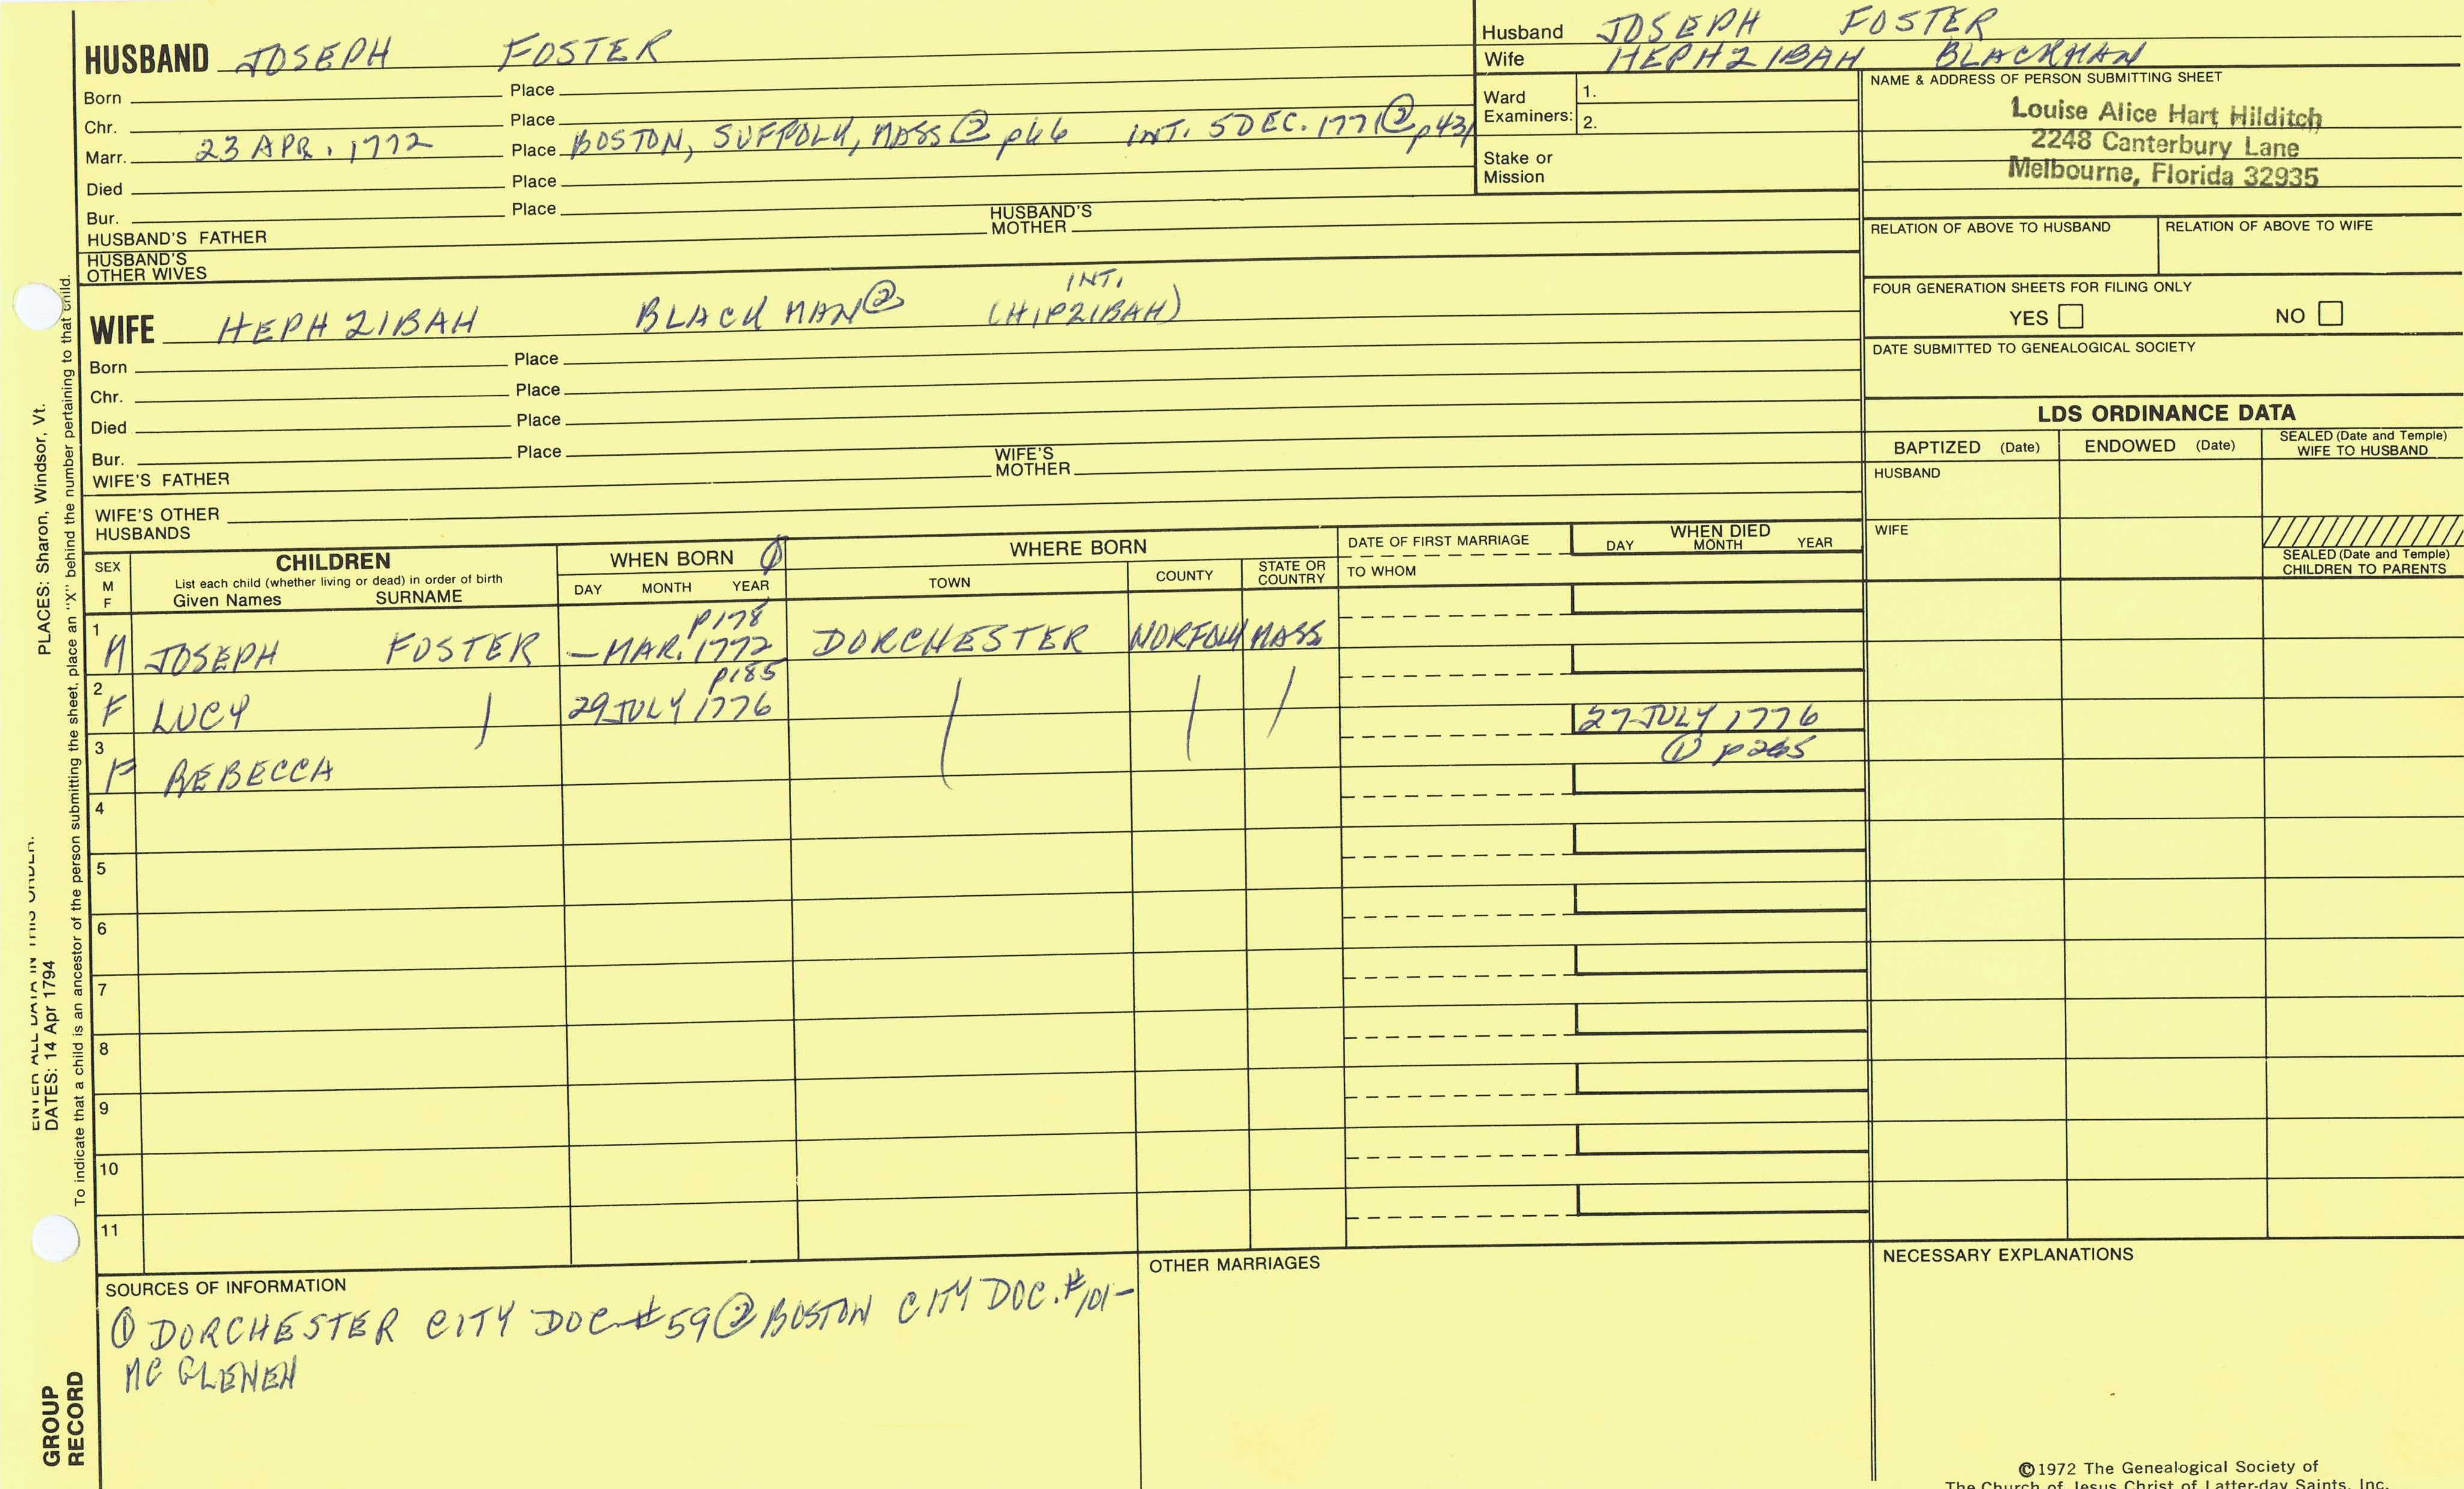 HUSBAND JOSEPH FOSTER
Born Place
Chr. Place
Marr. 23 APR. 1772 Place BOSTON, SUFFOLK, MASS ② p66 INT. 5 DEC. 1771 ② p431
Died Place
Bur. Place
HUSBAND'S FATHER HUSBAND'S MOTHER
HUSBAND'S OTHER WIVES
Husband JOSEPH FOSTER
Wife HEPHZIBAH BLACKMAN
Ward Examiners: 1.
2.
Stake or Mission
NAME & ADDRESS OF PERSON SUBMITTING SHEET
Louise Alice Hart Hilditch
2248 Canterbury Lane
Melbourne, Florida 32935
RELATION OF ABOVE TO HUSBAND RELATION OF ABOVE TO WIFE
FOUR GENERATION SHEETS FOR FILING ONLY
YES NO
DATE SUBMITTED TO GENEALOGICAL SOCIETY
INT.
WIFE HEPHZIBAH BLACKMAN ② (HIPZIBAH)
Born Place
Chr. Place
Died Place
Bur. Place
WIFE'S FATHER WIFE'S MOTHER
WIFE'S OTHER HUSBANDS
LDS ORDINANCE DATA
BAPTIZED (Date) ENDOWED (Date) SEALED (Date and Temple) WIFE TO HUSBAND
HUSBAND
WIFE
SEALED (Date and Temple) CHILDREN TO PARENTS
SEX M F
CHILDREN
List each child (whether living or dead) in order of birth
Given Names SURNAME
WHEN BORN ①
DAY MONTH YEAR
WHERE BORN
TOWN COUNTY STATE OR COUNTRY
DATE OF FIRST MARRIAGE
TO WHOM
WHEN DIED
DAY MONTH YEAR
p178
1 M JOSEPH FOSTER – MAR. 1772 DORCHESTER NORFOLK MASS
p185
2 F LUCY 29 JULY 1776 27 JULY 1776
① p265
3 F REBECCA
4
5
6
7
8
9
10
11
SOURCES OF INFORMATION
① DORCHESTER CITY DOC #59 ② BOSTON CITY DOC. #101–
MC GLENEN
OTHER MARRIAGES
NECESSARY EXPLANATIONS
©1972 The Genealogical Society of
The Church of Jesus Christ of Latter-day Saints, Inc.
ENTER ALL DATA IN THIS ORDER:
DATES: 14 Apr 1794 PLACES: Sharon, Windsor, Vt.
To indicate that a child is an ancestor of the person submitting the sheet, place an "X" behind the number pertaining to that child.
GROUP RECORD